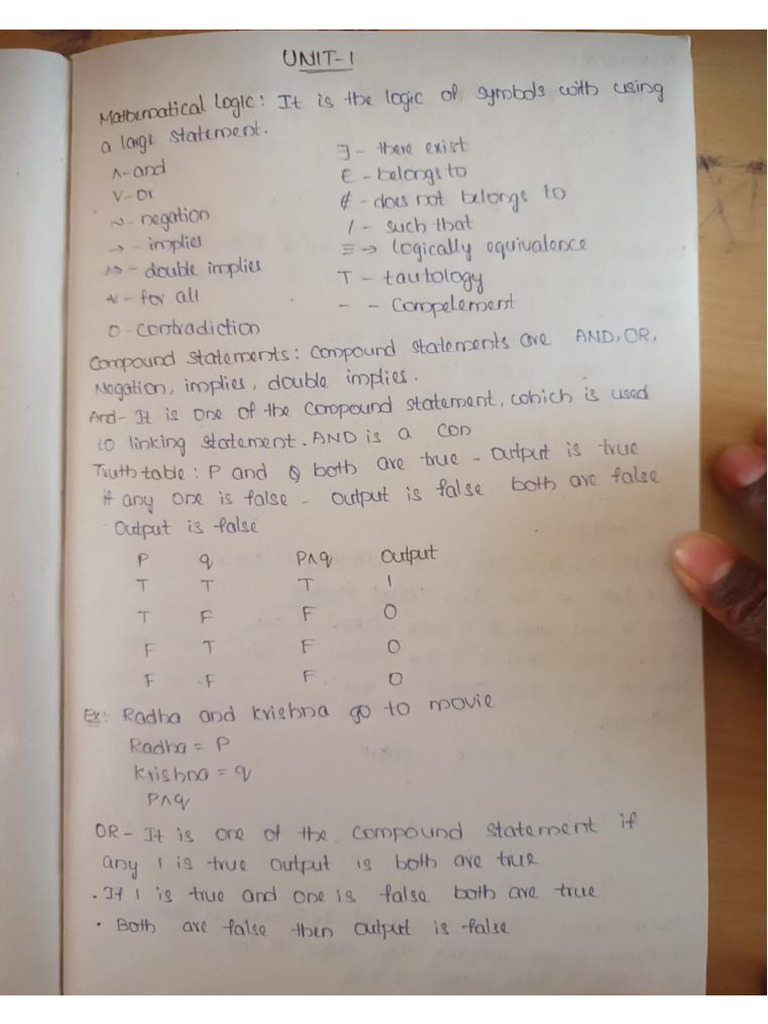 UNIT-1
Mathematical Logic: It is the logic of symbols with using
a large statement.
∧-and
∨-or
~-negation
→ - implies
↔ - double implies
∀ - for all
0-contradiction
∃ - there exist
∈ - belongs to
∉ - does not belongs to
/ - such that
≡ → logically equivalence
T - tautology
- - Compelement
Compound statements: compound statements are AND, OR,
Negation, implies, double implies.
And- It is one of the compound statement, which is used
to linking statement. AND is a con
Truth table: P and Q both are true - output is true
if any one is false - output is false both are false
output is false
P q P∧q output
T T T 1
T F F 0
F T F 0
F F F 0
Ex: Radha and Krishna go to movie
Radha = P
Krishna = q
P∧q
OR- It is one of the compound statement if
any 1 is true output is both are true
. If 1 is true and one is false both are true
. Both are false then output is false